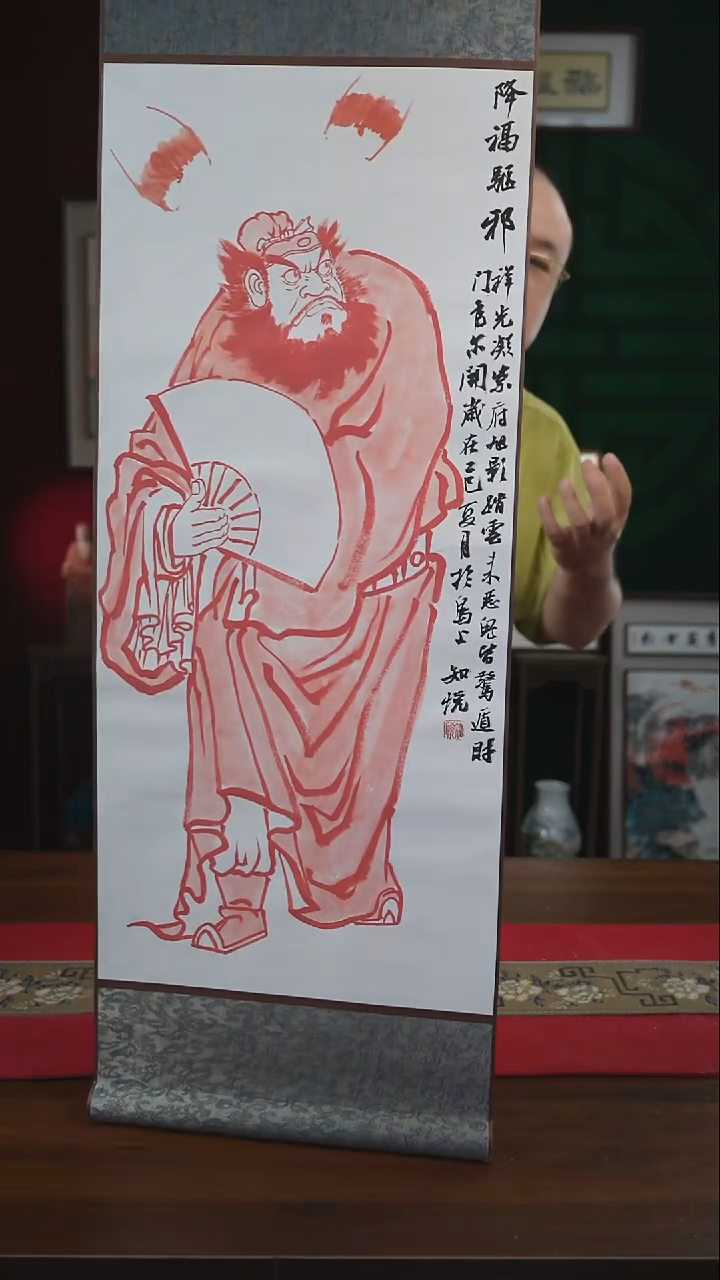 降福驱邪
祥光凝紫府旭影踏云来恶鬼皆惊遁财
门应尔开岁在乙巳夏月于岛上
知悦